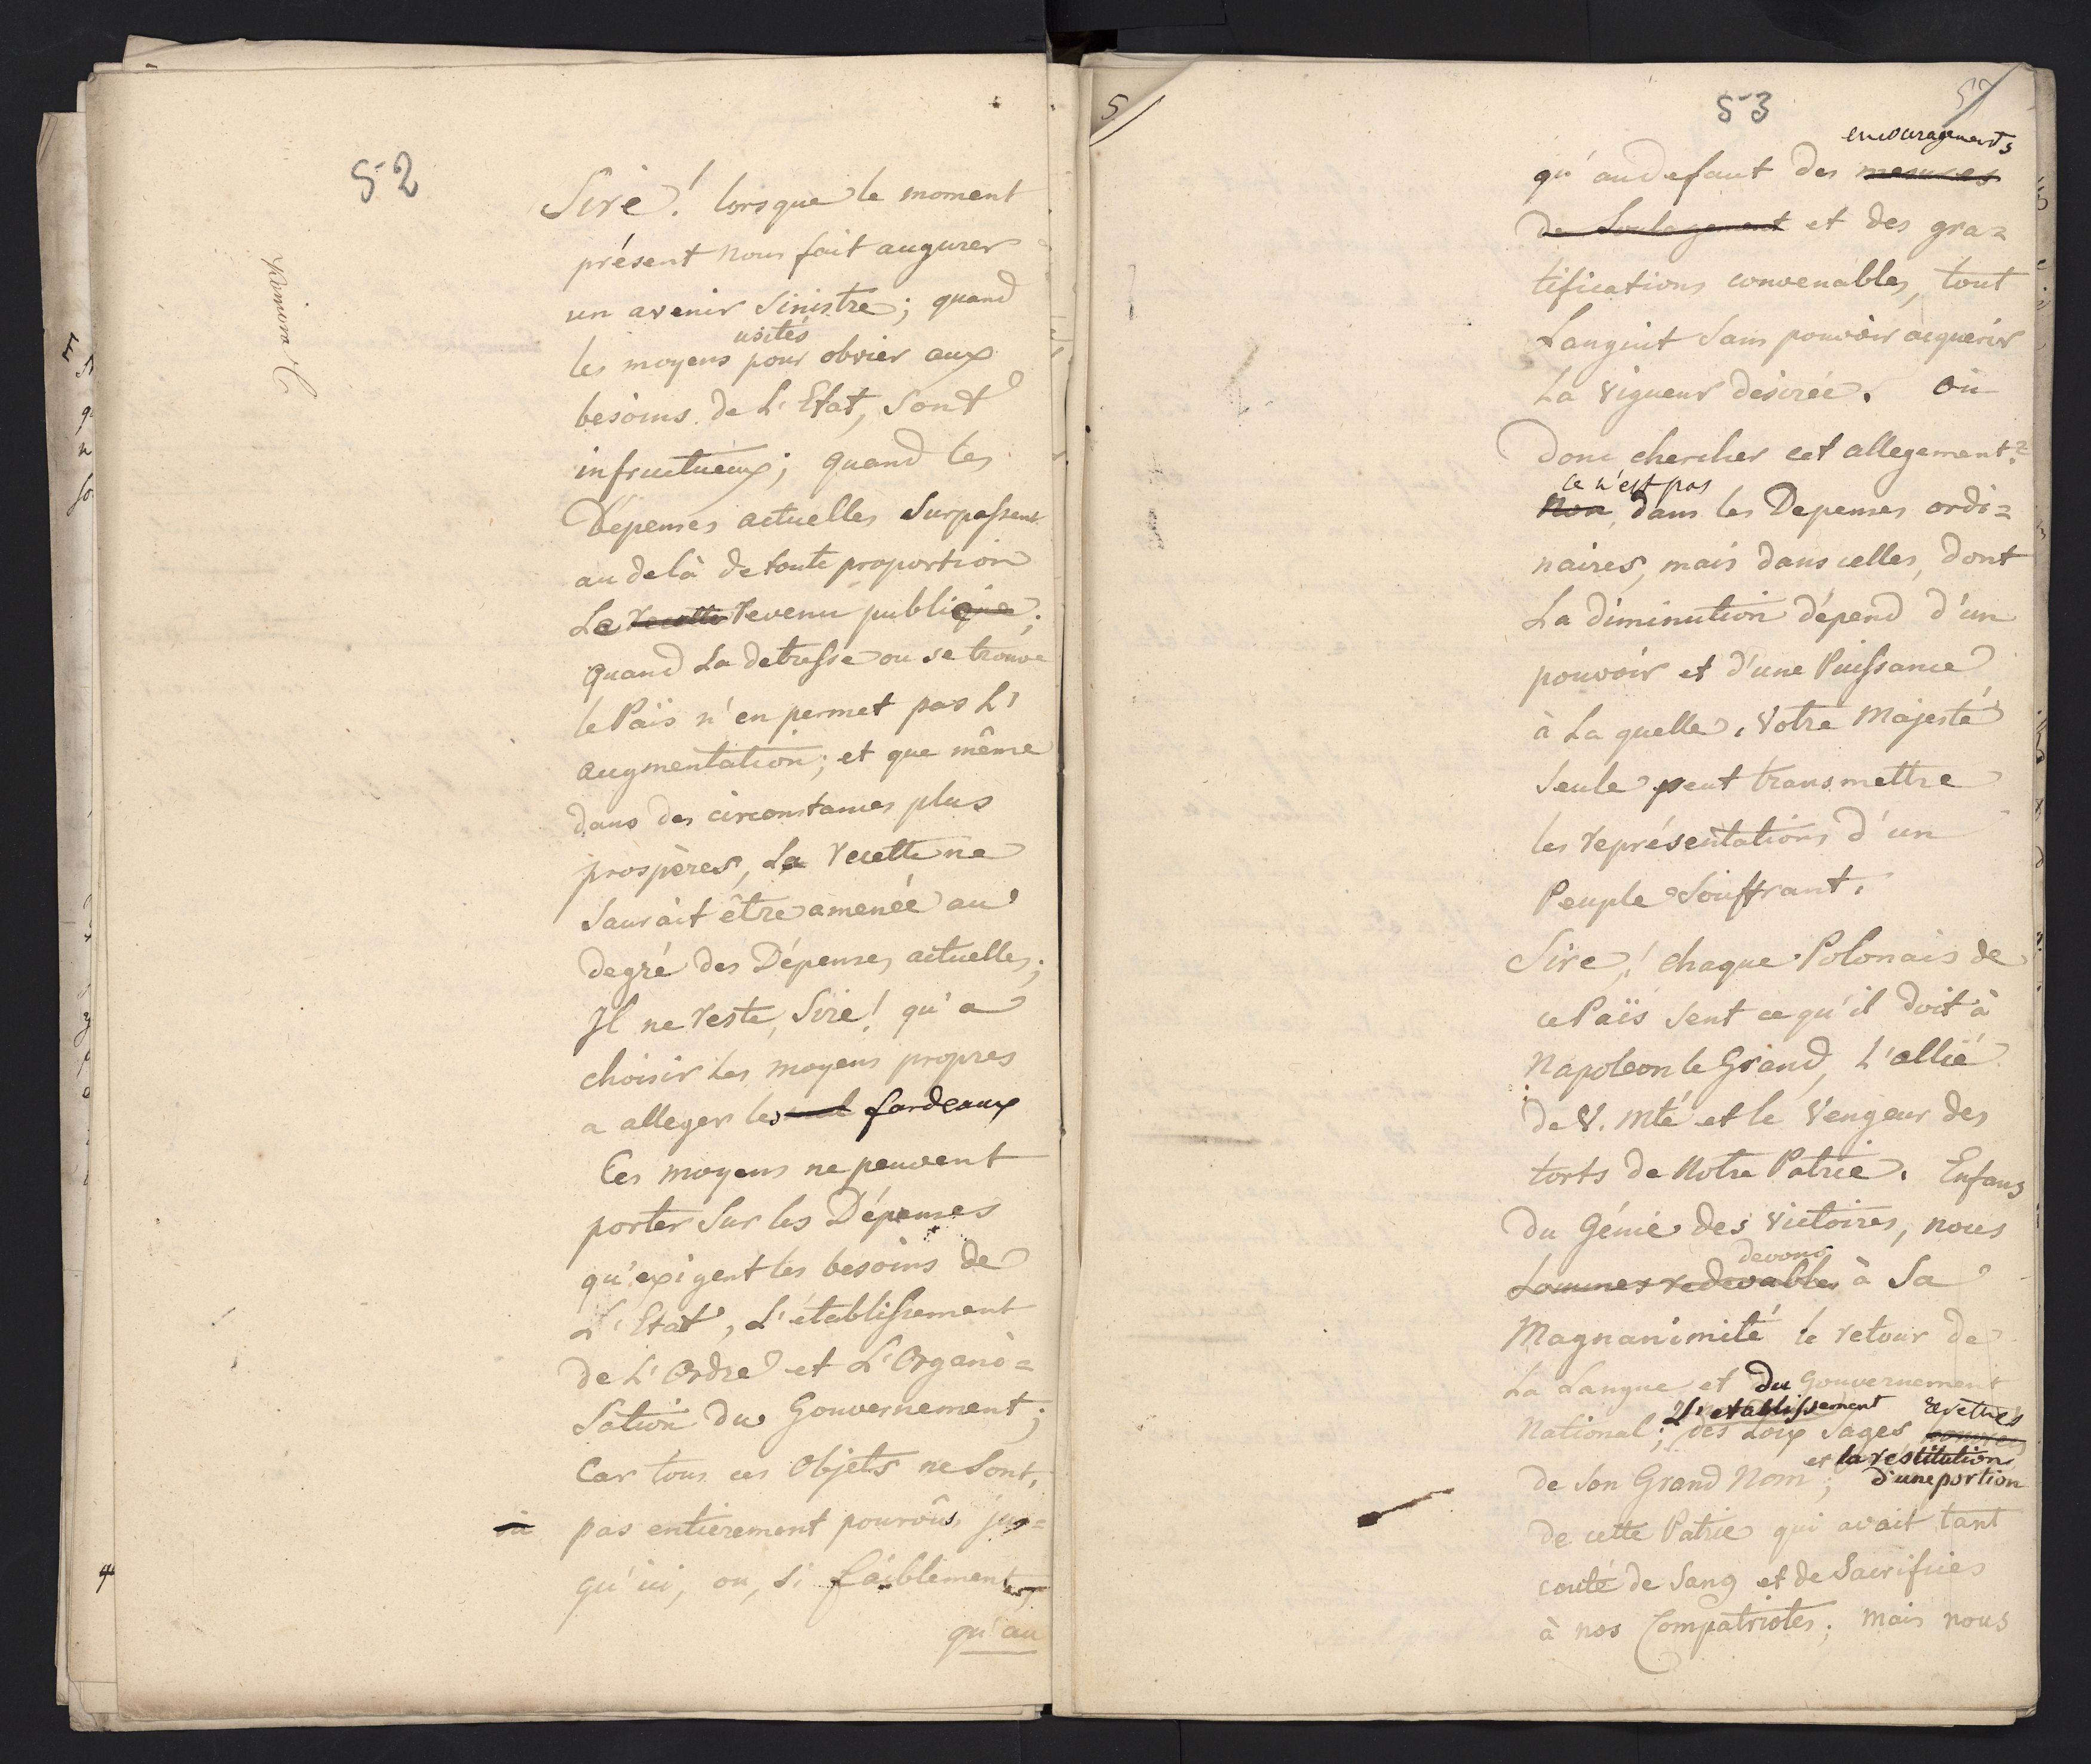 52
Sire! lorsque le moment
présent nous fait augurer
un avenir Sinistre; quand
usités
les moyens pour obvier aux
besoins de L'Etat, sont
infructueux; quand les
Dépenses actuelles Surpassent
au delà de toute proportion
Le recette revenu publique;
quand La detresse ou se trouve
le Païs n'en permet pas L'
augmentation; et que même
dans des circonstances plus
prospères, La recette ne
saurait être amenée au
degré des Dépenses actuelles;
Il ne reste, Sire! qu'a
choisir les moyens propres
a alleger les fardeaux
Ces moyens ne peuvent
porter sur les Dépenses
qu'exigent les besoins de
L'Etat, L'établissement
de L'Ordre et L'Organi=
sation du Gouvernement;
Car tous ces Objets ne sont,
pas entierement pourvûs jus=
qu'ici, ou, si faiblement
qu'au
53
encouragements
qu'au defaut des mesures
de Soulagement et des gra=
tifications convenables, tout
Languit sans pouvoir acquerir
La vigueur desirée. Où
donc chercher cet allegement?
ce n'est pas
Non, dans les Depenses ordi=
naires, mais dans celles, dont
La diminution dépend d'un
pouvoir et d'une Puissance
à La quelle, Votre Majesté
Seule peut transmettre
les représentations d'un
Peuple Souffrant.
Sire! chaque Polonais de
ce Païs sent ce qu'il doit à
Napoleon le Grand, L'allié
de V. Mté et le Vengeur des
torts de Notre Patrie. Enfans
du Génie des Victoires, nous
devons
sommes redevables à Sa
Magnanimité le retour de
La Langue et du Gouvernement
L'etablissement revetues
National; des Loix sages
et la restitution
de son Grand Nom; d'une portion
de cette Patrie qui avait tant
couté de Sang et de Sacrifices
à nos Compatriotes; mais nous